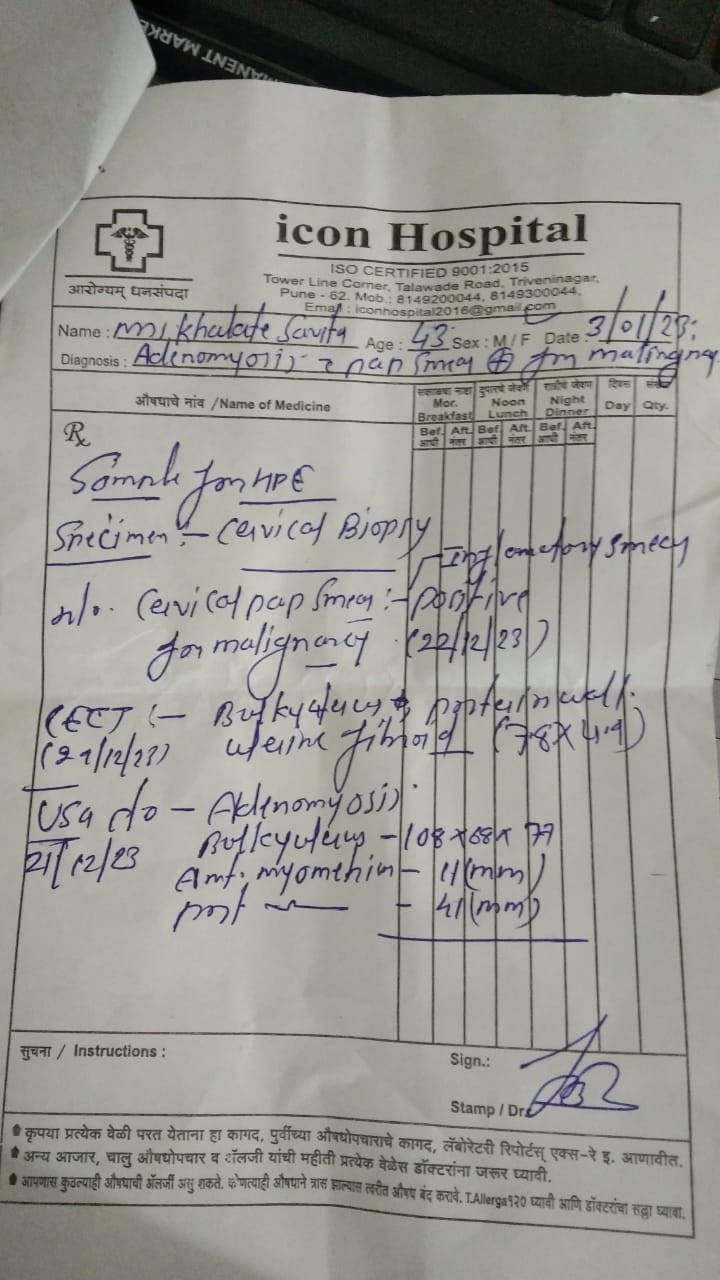 MANENT MARK
icon Hospital
ISO CERTIFIED 9001:2015
आरोग्यम् धनसंपदा
Tower Line Corner, Talawade Road, Triveninagar,
Pune - 62. Mob.: 8149200044, 8149300044,
Email : iconhospital2016@gmail.com
Name : Mrs. Khalate Savita Age : 43 Sex : M / F Date : 3/01/23
Diagnosis : Adenomyosis pap smear ⊕ for malingnay
औषधाचे नांव /Name of Medicine
सकाळचा नाष्टा Mor. Breakfast दुपारचे जेवण Noon Lunch रात्रीचे जेवण Night Dinner दिवस Day Qty.
Bef. आधी Aft. नंतर Bef. आधी Aft. नंतर Bef. आधी Aft. नंतर
Rx
Sample for HPE
Specimen :- Cervical Biopsy
Inflamatory smear
Cervical pap smear :- positive
for malignancy (22/12/23)
CECT :- Bulky uterus wall
uterine fibroid (7.8 x 4.9)
USG - Adenomyosis
21/12/23 Bulky uterus - 108 x 68 x 77
Ant. myometrium - 11 (mm)
post - 41 (mm)
सुचना / Instructions :
Sign.:
Stamp / Dr.
कृपया प्रत्येक वेळी परत येताना हा कागद, पुर्वीच्या औषधोपचाराचे कागद, लॅबोरेटरी रिपोर्टस् एक्स-रे इ. आणावीत.
अन्य आजार, चालु औषधोपचार व ॲलर्जी यांची महीती प्रत्येक वेळेस डॉक्टरांना जरूर घ्यावी.
आपणास कुठल्याही औषधाची ॲलर्जी असु शकते. कोणत्याही औषधाने त्रास झाल्यास त्वरीत औषध बंद करावे. T.Allerga१२० घ्यावी आणि डॉक्टरांचा सल्ला घ्यावा.